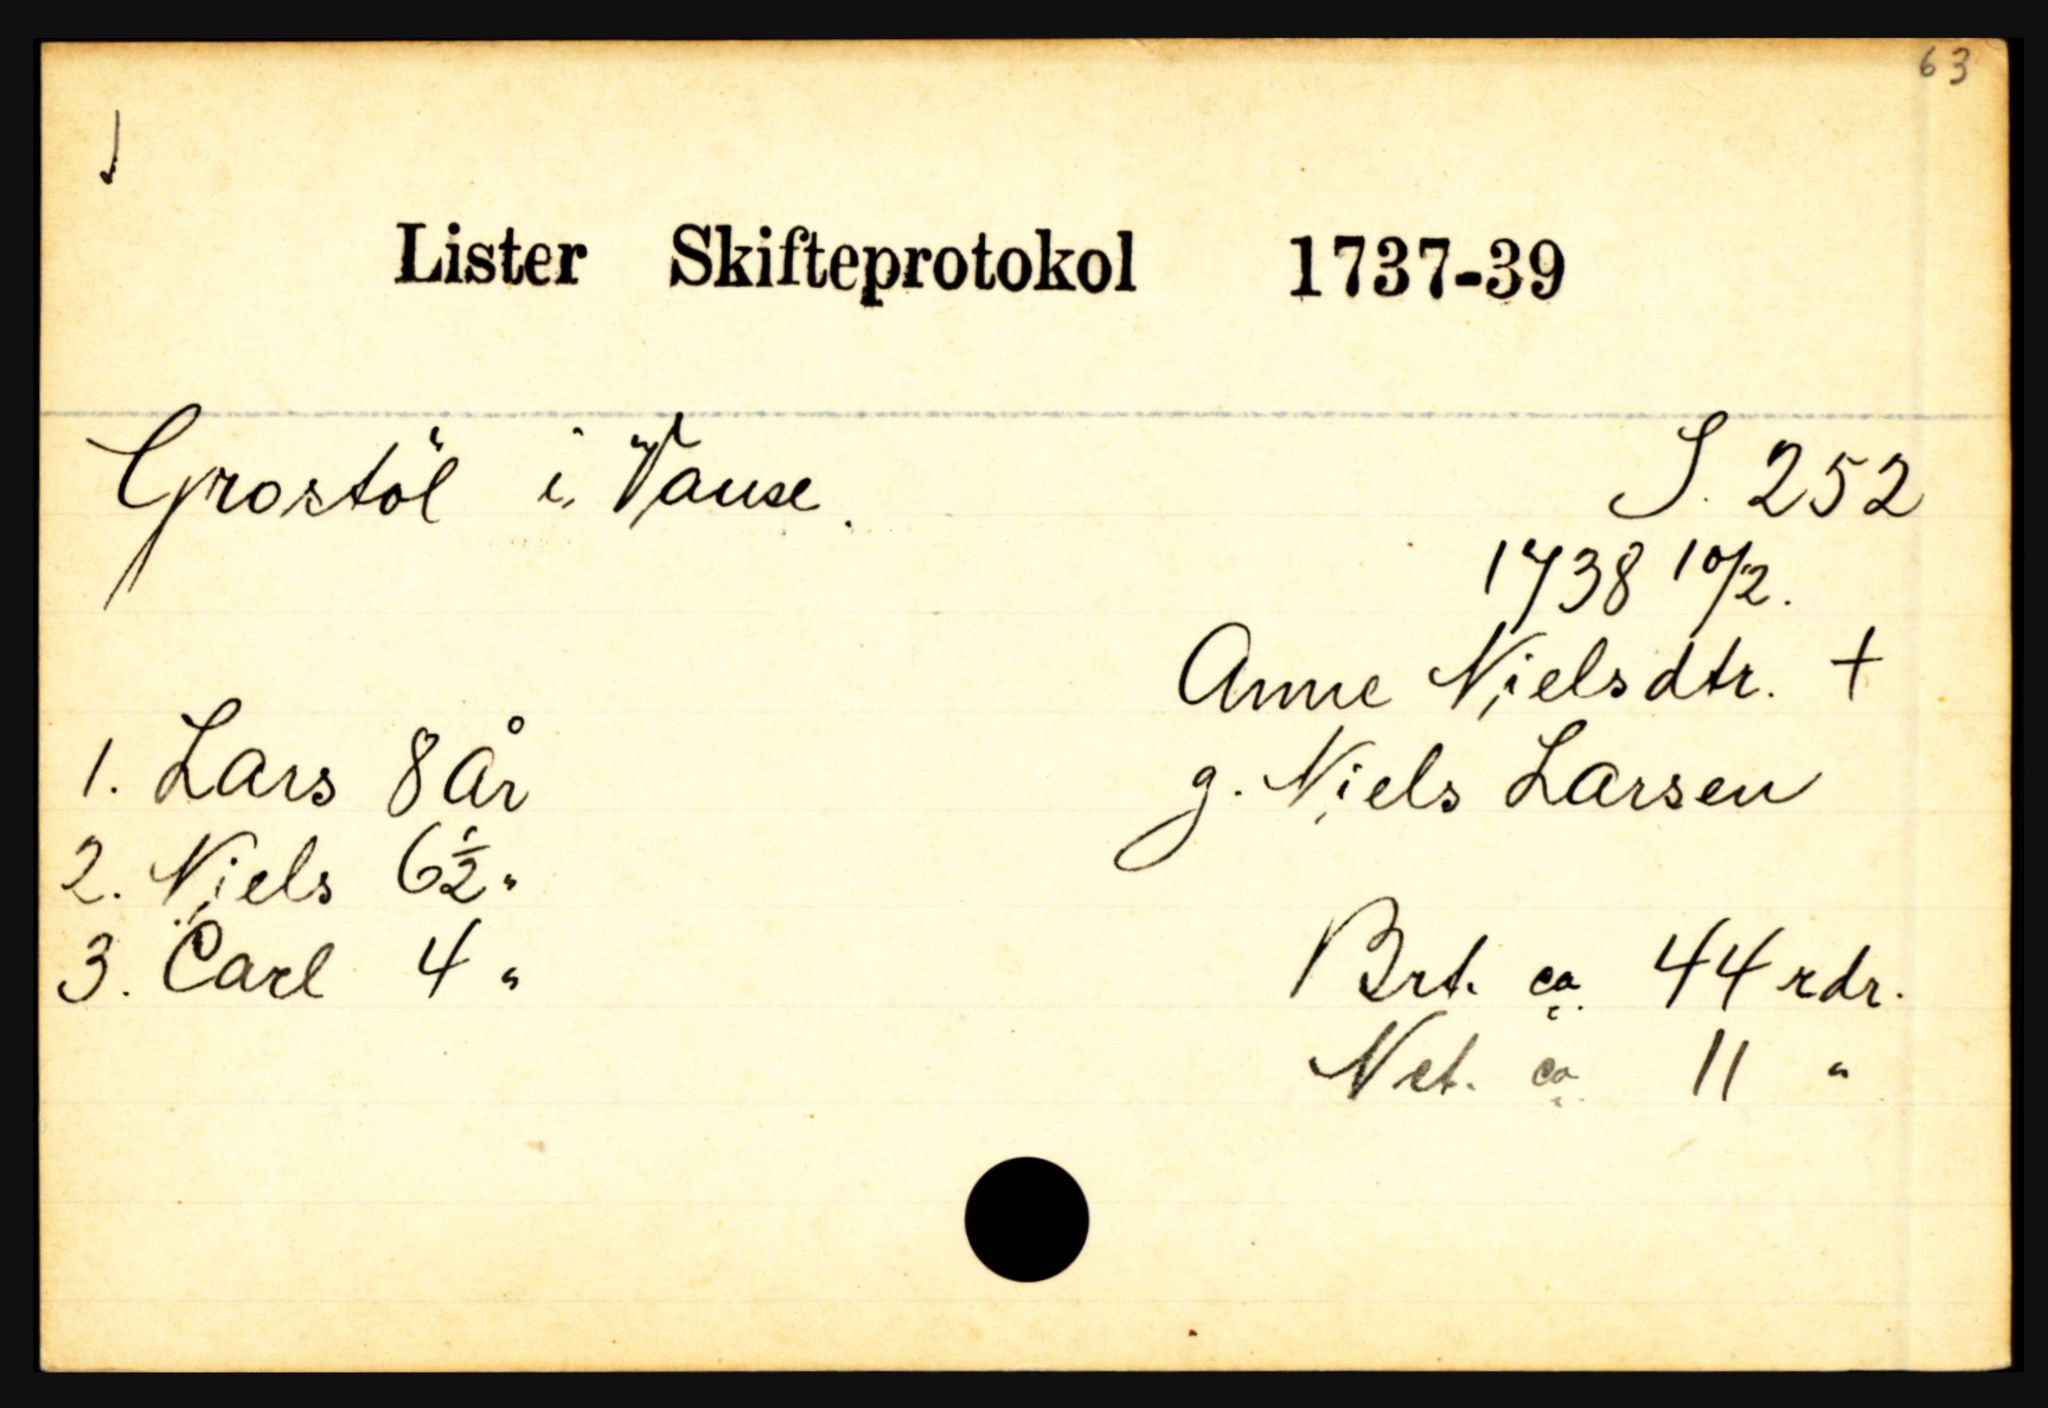 63
Lister Skifteprotokol 1737-39
Grostöl i Vanse.
S. 252
1738 10/2.
Anne Nielsdtr. +
g. Niels Larsen
1. Lars 8 År
2. Niels 6½ "
3. Carl 4 "
Brt. ca. 44 rdr.
Net. ca. 11 "